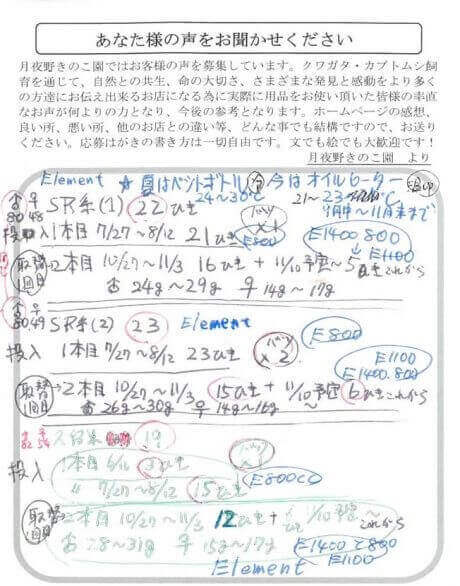 あなた様の声をお聞かせください
月夜野きのこ園ではお客様の声を募集しています。クワガタ・カブトムシ飼
育を通じて、自然との共生、命の大切さ、さまざまな発見と感動をより多く
の方達にお伝え出来るお店になる為に実際に用品をお使い頂いた皆様の率直
なお声が何よりの力となり、今後の参考となります。ホームページの感想、
良い所、悪い所、他のお店との違い等、どんな事でも結構ですので、お送り
ください。応募はがきの書き方は一切自由です。文でも絵でも大歓迎です！
月夜野きのこ園 より
Element ☆夏はペットボトル 冷 今はオイルヒーター
24～30℃ 21～23℃
9月中～11月末まで
SR系(1) 22ひき
投入 1本目 7/27～8/12 21ひき E800 E1400 800
E1100
取替 1回目 →2本目 10/27～11/3 16ひき + 11/10予定～5ひき これから
♂ 24g～29g ♀ 14g～17g
SR系(2) 23 Element E800
投入 1本目 7/27～8/12 23ひき ×2 E1100
E1400.800
取替 1回目 →2本目 10/27～11/3 15ひき + 11/10予定 6ひき これから
♂ 26g～30g ♀ 14g～16g ～
久留米 19
投入 1本目 3ひき
〃 7/27～8/12 15ひき E800cc
取替 1回目 2本目 10/27～11/3 12ひき + 11/10予定～ これから
♂ 28～31g ♀ 15g～17g E1400と800
Element E1100